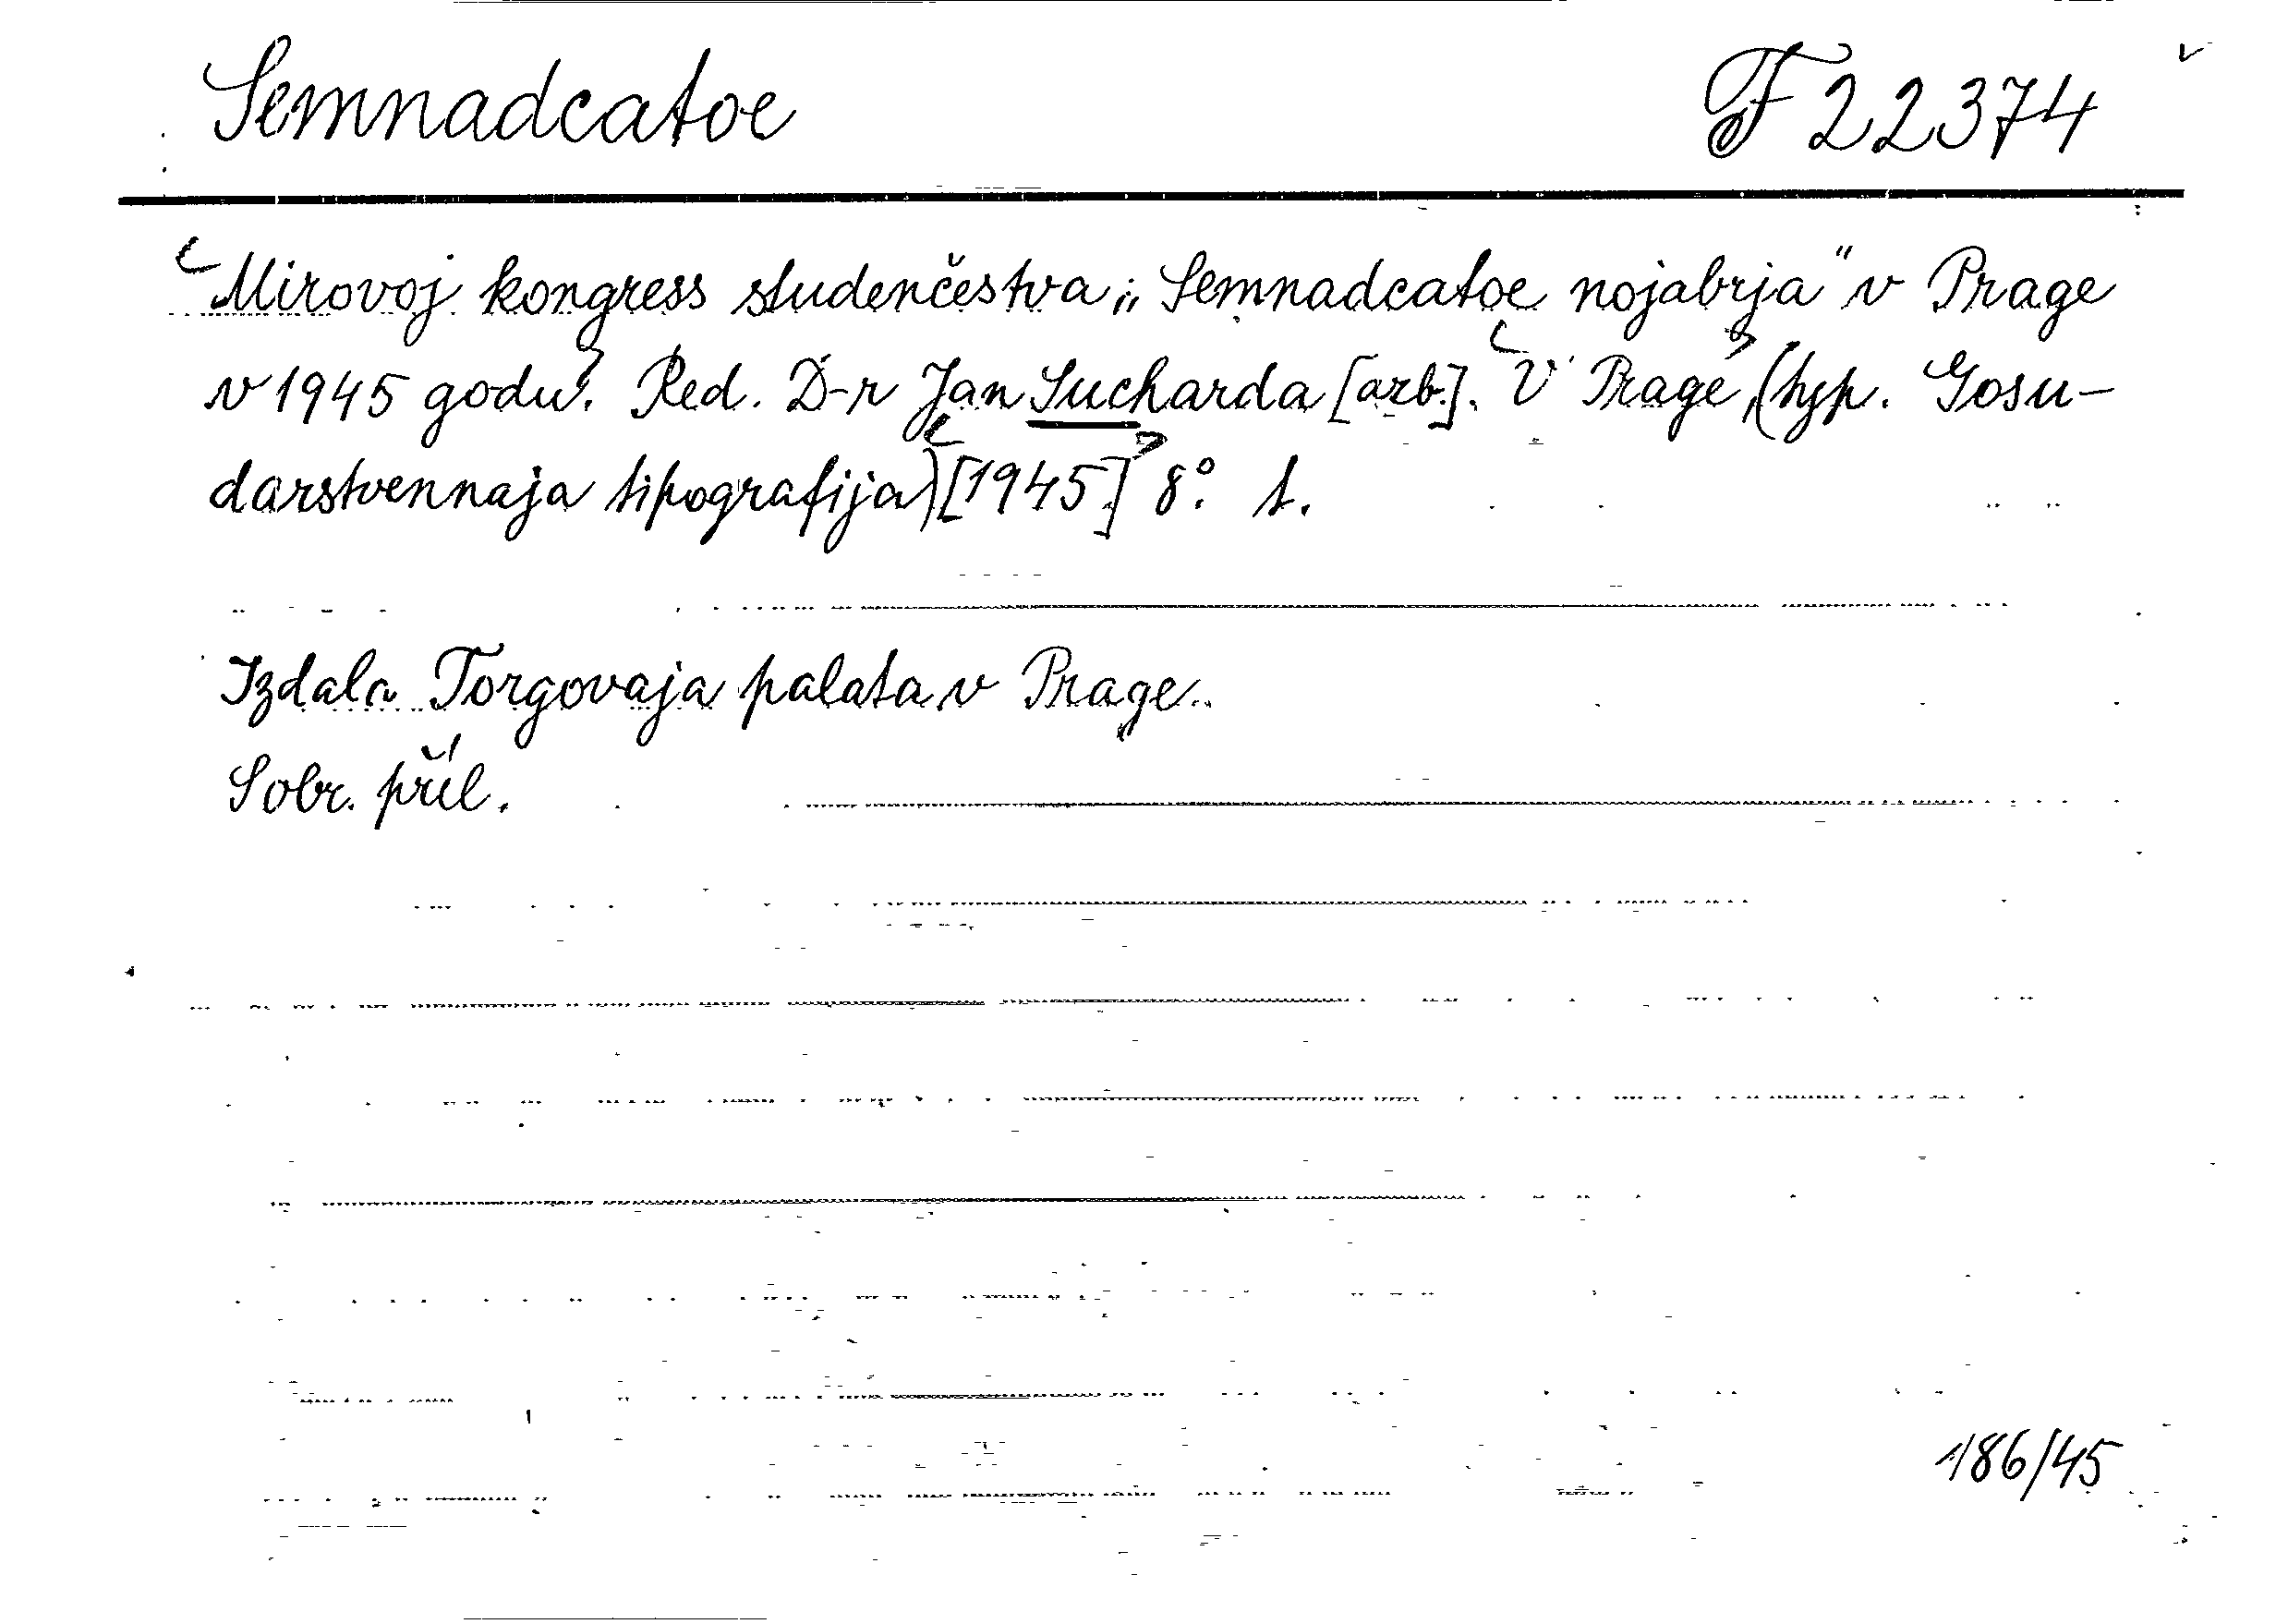 Semnadcatoe F 22374
Mirovoj kongress studenčestva „Semnadcatoe nojabrja" v Prage
v 1945 godu. Red. D-r Jan Sucharda [azb.]. V Prage, (typ. Gosu-
darstvennaja tipografija) [1945] 8°. t.
Izdala Torgovaja palata v Prage.
Sobr. příl.
186/45